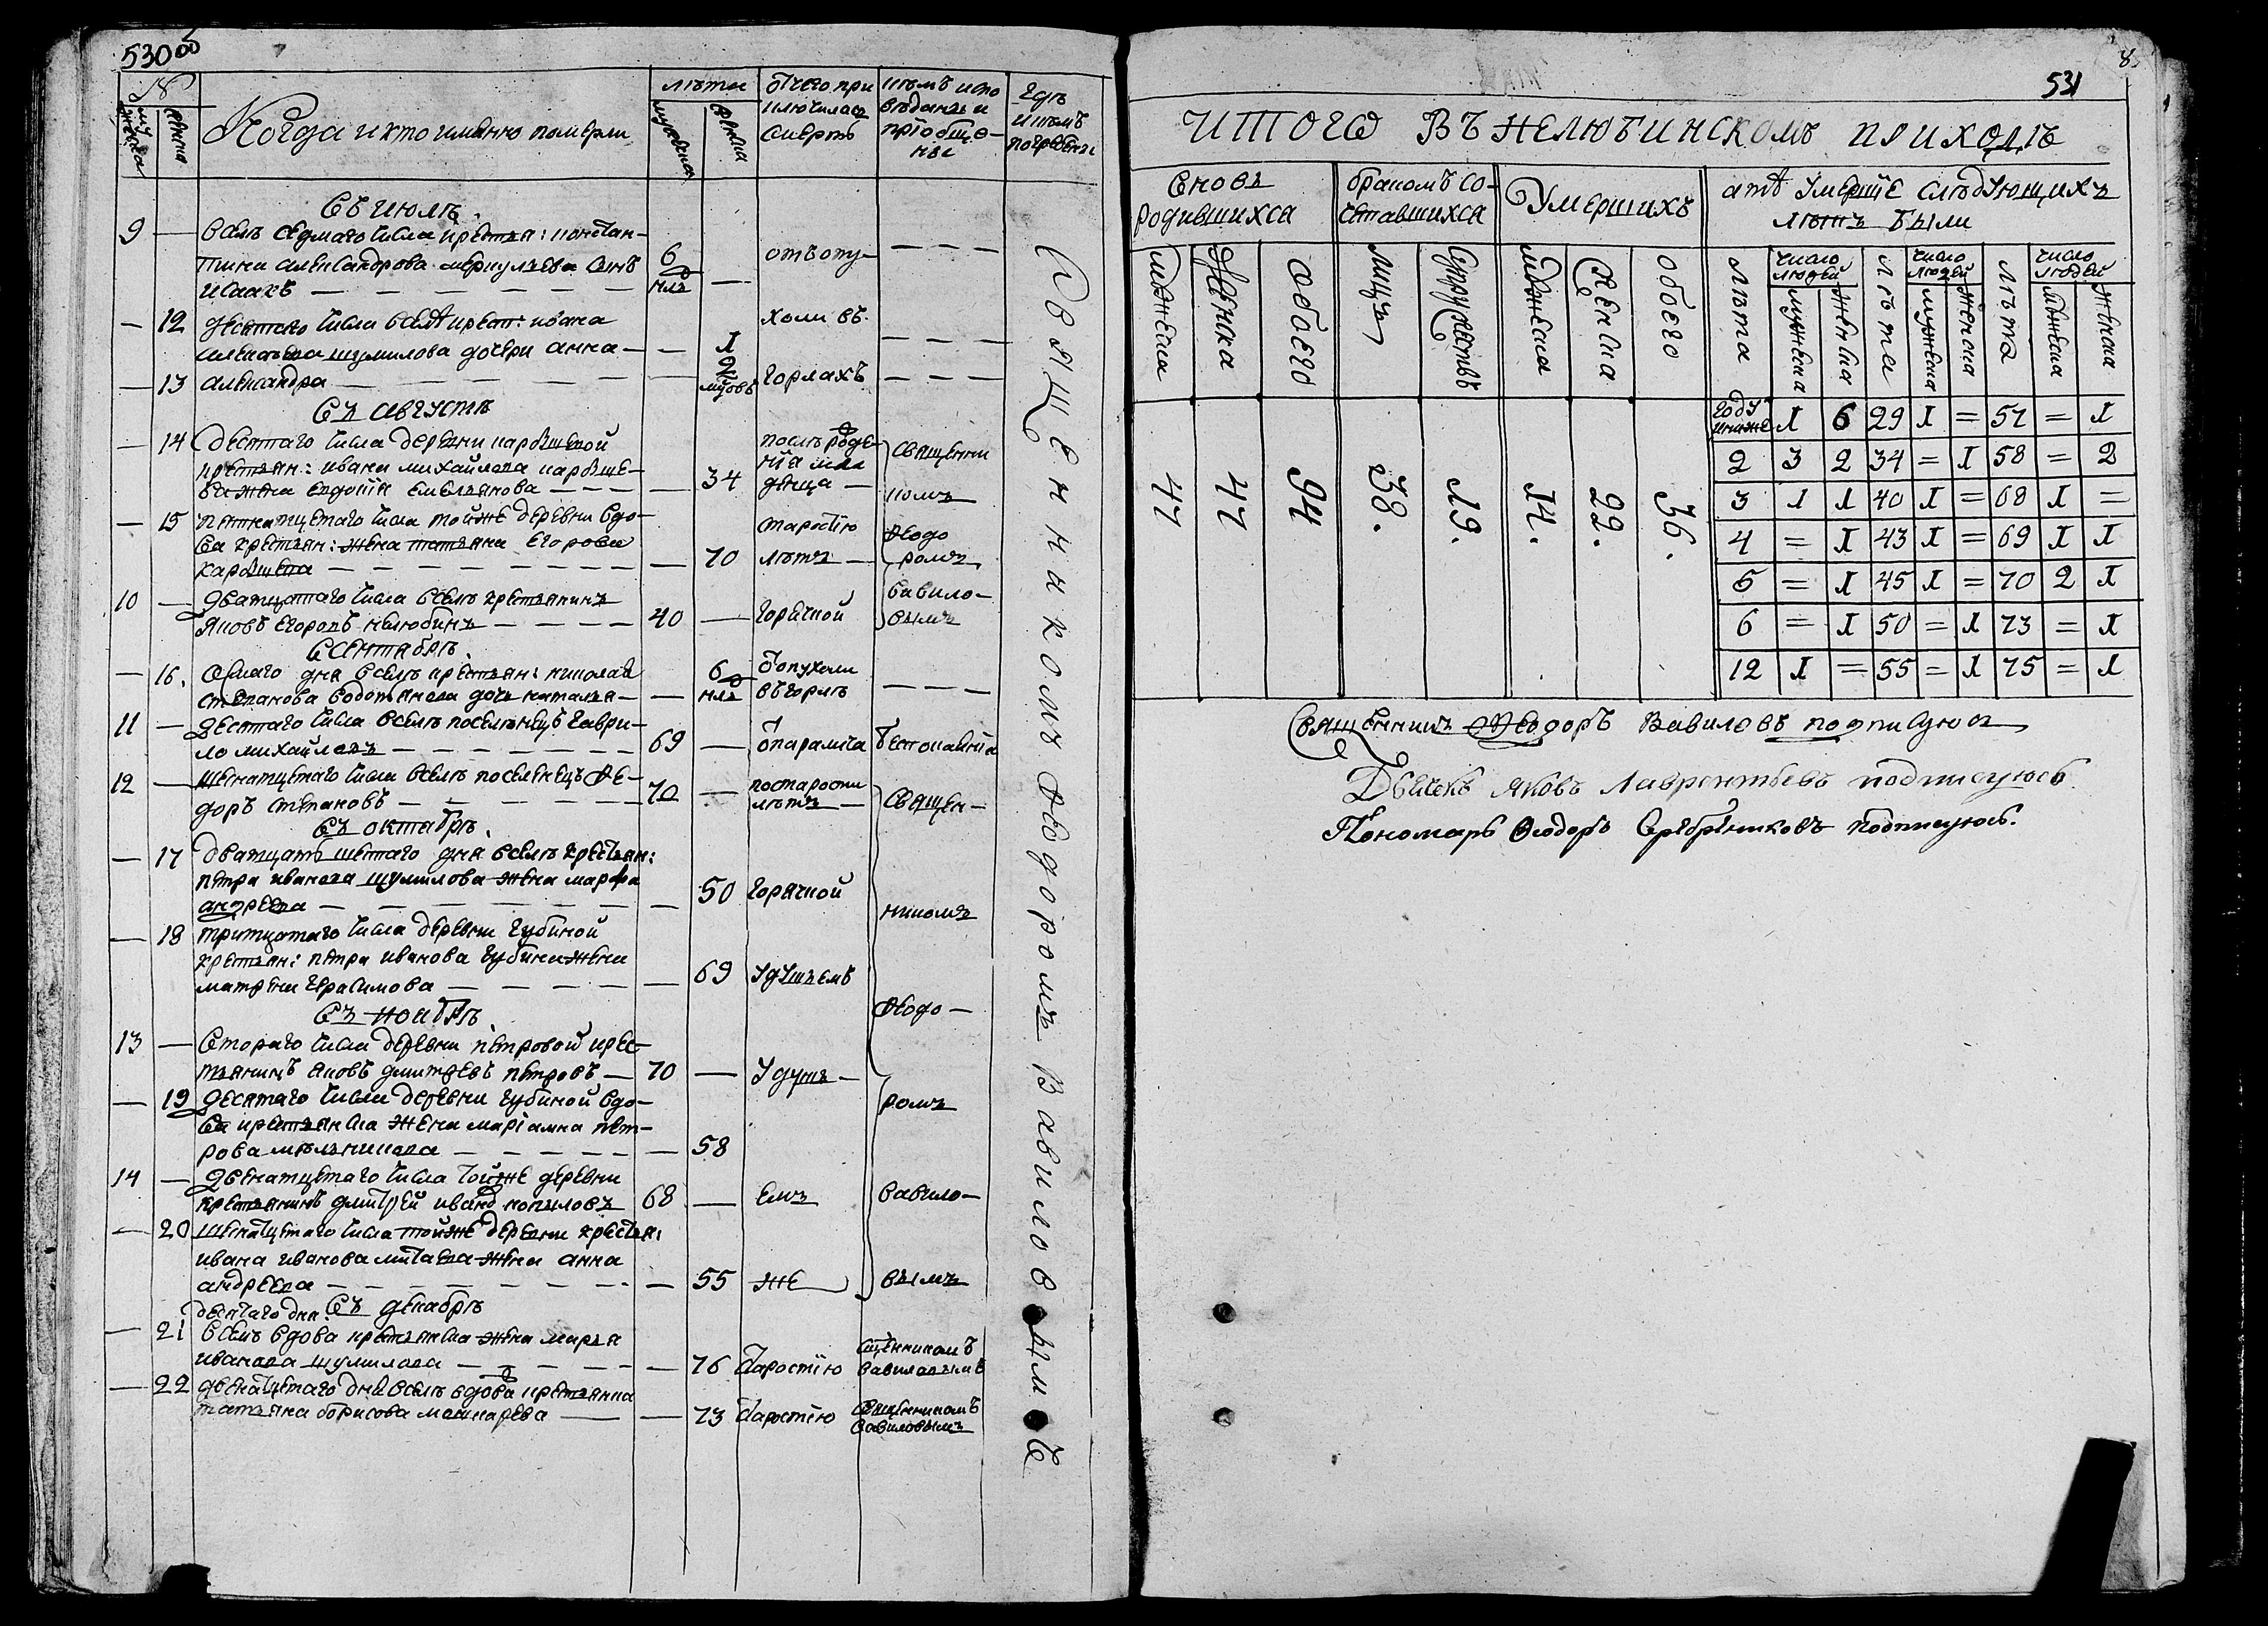 530 об
№
мужеска
женска
Когда и кто имянно померли
лѣта
мужеска
женска
отчего при
ключилась
смерть
кѣмъ испо
вѣданы и
пріобще-
ны
гдѣ
и кѣмъ
погребены
Въ июлѣ
9 — Всѣлѣ седмаго числа крестья: констан-
тина александрова меркульева сынъ
исаакъ — 6 млъ —
отъ опу- — — —
— 12 десятаго числа всѣлѣ крест: ивана
алексѣева шумилова дочери анна — — 1
холи въ — — —
— 13 александра — —
горлахъ — — —
Въ августѣ
— 14 десятаго числа деревни карбышевой
крестьян: ивана михайлова карбыше-
ва жена евдокія емельянова — — 34
послѣ рожде-
нія мла
денца —
священни
комъ
— 15 пятнатцетаго числа тойже деревни вдо-
ва крестьян: жена татьяна егорова
карбышева — — 70
старостію
лѣтъ —
Ѳедо
ромъ
10 — Дватцатаго числа всѣлѣ крестьянинъ
Яковъ егоровъ нелюбинъ — 40 — горячкой
вавило-
вымъ
Всентябрѣ
— 16. осмаго дня всѣлѣ крестьян: николая
степанова водопьянова дочь наталья — — 6 млъ
опухоли
въ горлѣ — — —
11 — десятаго числа всѣлѣ поселенецъ гаври-
ло михайловъ — 69 — паралича безпокаянія
12 — шеснатцетаго числа всѣлѣ поселенецъ Ѳе-
доръ степановъ — 70 —
постарости
лѣтъ —
Священ-
Въ октябрѣ
— 17 дватцать шестаго дня всѣлѣ крестьян:
петра иванова шумилова жена марфа
андреева — — 50 горячкой
никомъ
— 18 тритцатаго числа деревни губиной
крестьян: петра иванова губина жена
матрена герасимова — — 69 удушьемъ
Въ ноябрѣ
Ѳедо —
13 — Втораго числа деревни петровой крес-
тьянинъ яковъ дмитревъ петровъ — 70 — удушь —
— 19 десятаго числа деревни губиной вдо-
ва крестьянска жена маріамна пет-
рова мѣльникова — — 58
ромъ
14 — двенатцетаго числа тойже деревни
крестьянинъ дмитрей иванов копыловъ 68 — емъ
вавило —
— 20 шеснатцетаго числа тойже деревни крестья:
ивана иванова жена анна
андреева — — 55 же
вымъ
Въ декабрѣ
десятаго дня
— 21 Всѣлѣ вдова крестьянска жена марья
иванова шумилова — — 76 старостію
священникомъ
вавиловымъ
— 22 двенатцетаго дня всѣлѣ вдова крестьянка
татьяна борисова — — 73 старостію
священникомъ
вавиловымъ
Священникомъ Ѳеодоромъ Вавиловымъ
531
8
ИТОГО ВЪ НЕЛЮБИНСКОМЪ ПРИХОДѢ
вновь
родившихся
бракомъ со-
четавшихся
Умершихъ
а тѣ умершіе слѣдующихъ
лѣтъ были
мужеска
женска
обоего
лицъ
супружествъ
мужеска
женска
обоего
лѣта
число
людей
мужеска
женска
лѣта
число
людей
мужеска
женска
лѣта
число
людей
мужеска
женска
47 47 94 38. 19. 14. 22. 36.
году
и ниже 1 6 29 1 = 57 = 1
2 3 2 34 = 1 58 = 2
3 1 1 40 1 = 68 1 =
4 = 1 43 1 = 69 1 1
5 = 1 45 1 = 70 2 1
6 = 1 50 = 1 73 = 1
12 1 = 55 = 1 75 = 1
Священникъ Ѳеодоръ Вавиловъ подписуюсь
Дьячекъ Яковъ Лаврентьевъ подписуюсь
Пономарь Ѳеодоръ Серебрениковъ подписуюсь.